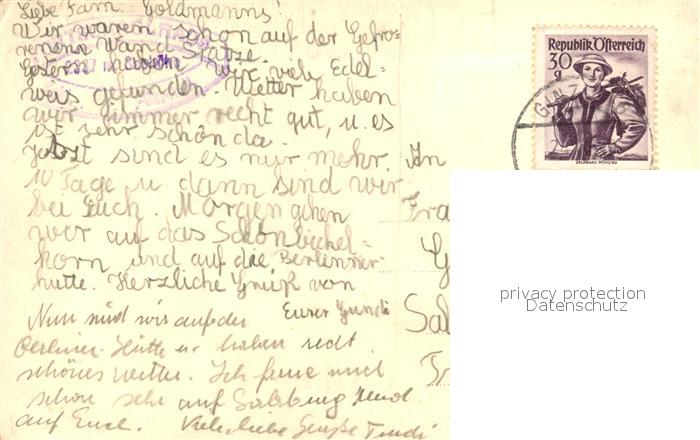 Liebe Fam. Goldmanns!
Wir waren schon auf der Gefro-
renenn Wand Spitze.
Gestern haben wir viele Edel-
weis gefunden. Wetter haben
wir immer recht gut, u. es
ist sehr schön da.
Jetzt sind es nur mehr
10 Tage u dann sind wir
bei Euch. Morgen gehen
wir auf das Schönbichel-
horn und auf die Berlinner-
hütte. Herzliche Grüß von
Eurer Gundi
Nun sind wir auf der
Berliner-Hütte u. haben recht
schönes Wetter. Ich freue mich
schon sehr auf Salzburg und
auf Euch. Viele liebe Grüße
An
Fra
Sal
Republik Österreich
30
g
SALZBURG, PONGAU
privacy protection
Datenschutz